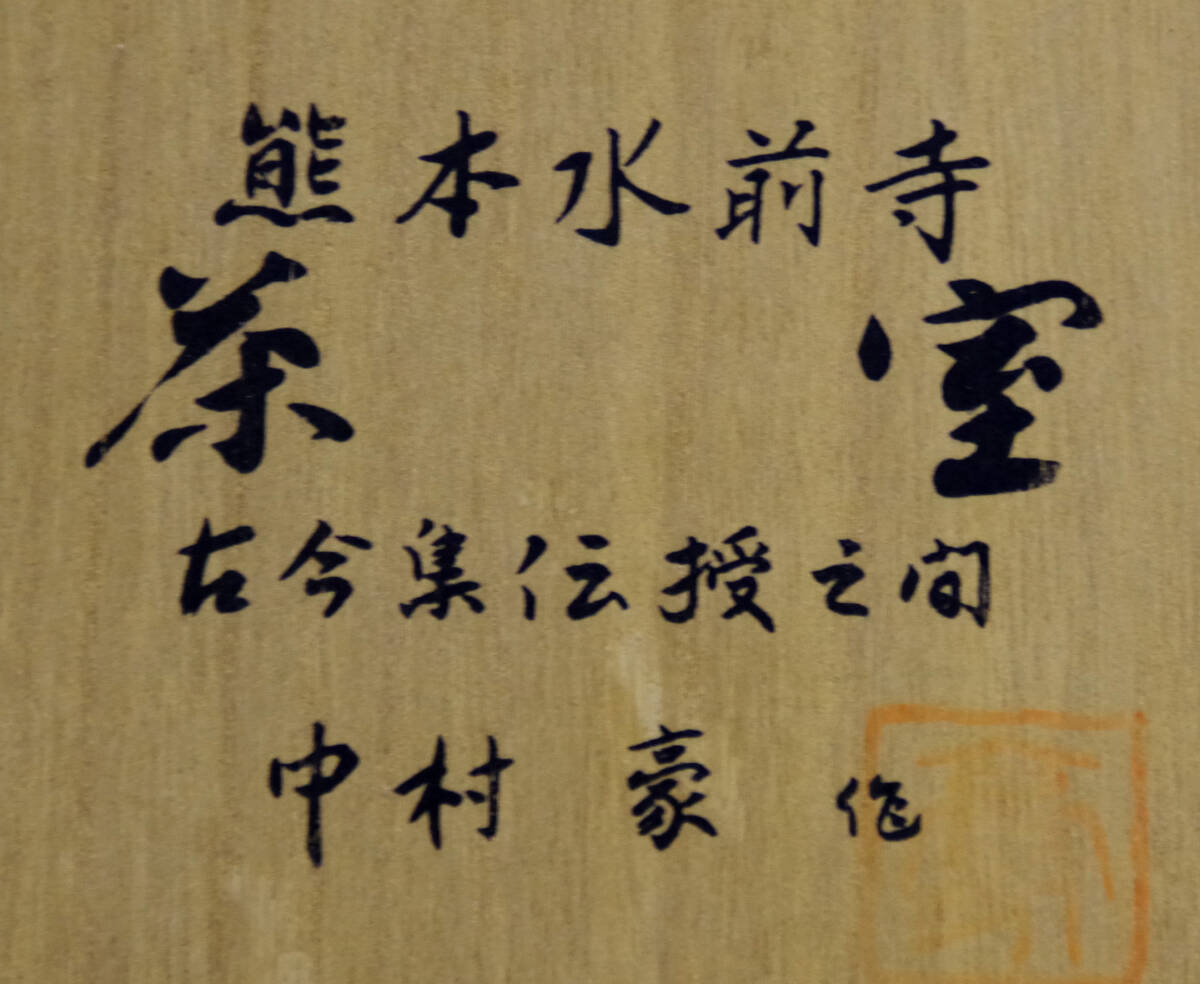 熊本水前寺
茶室
古今集伝授之間
中村豪作